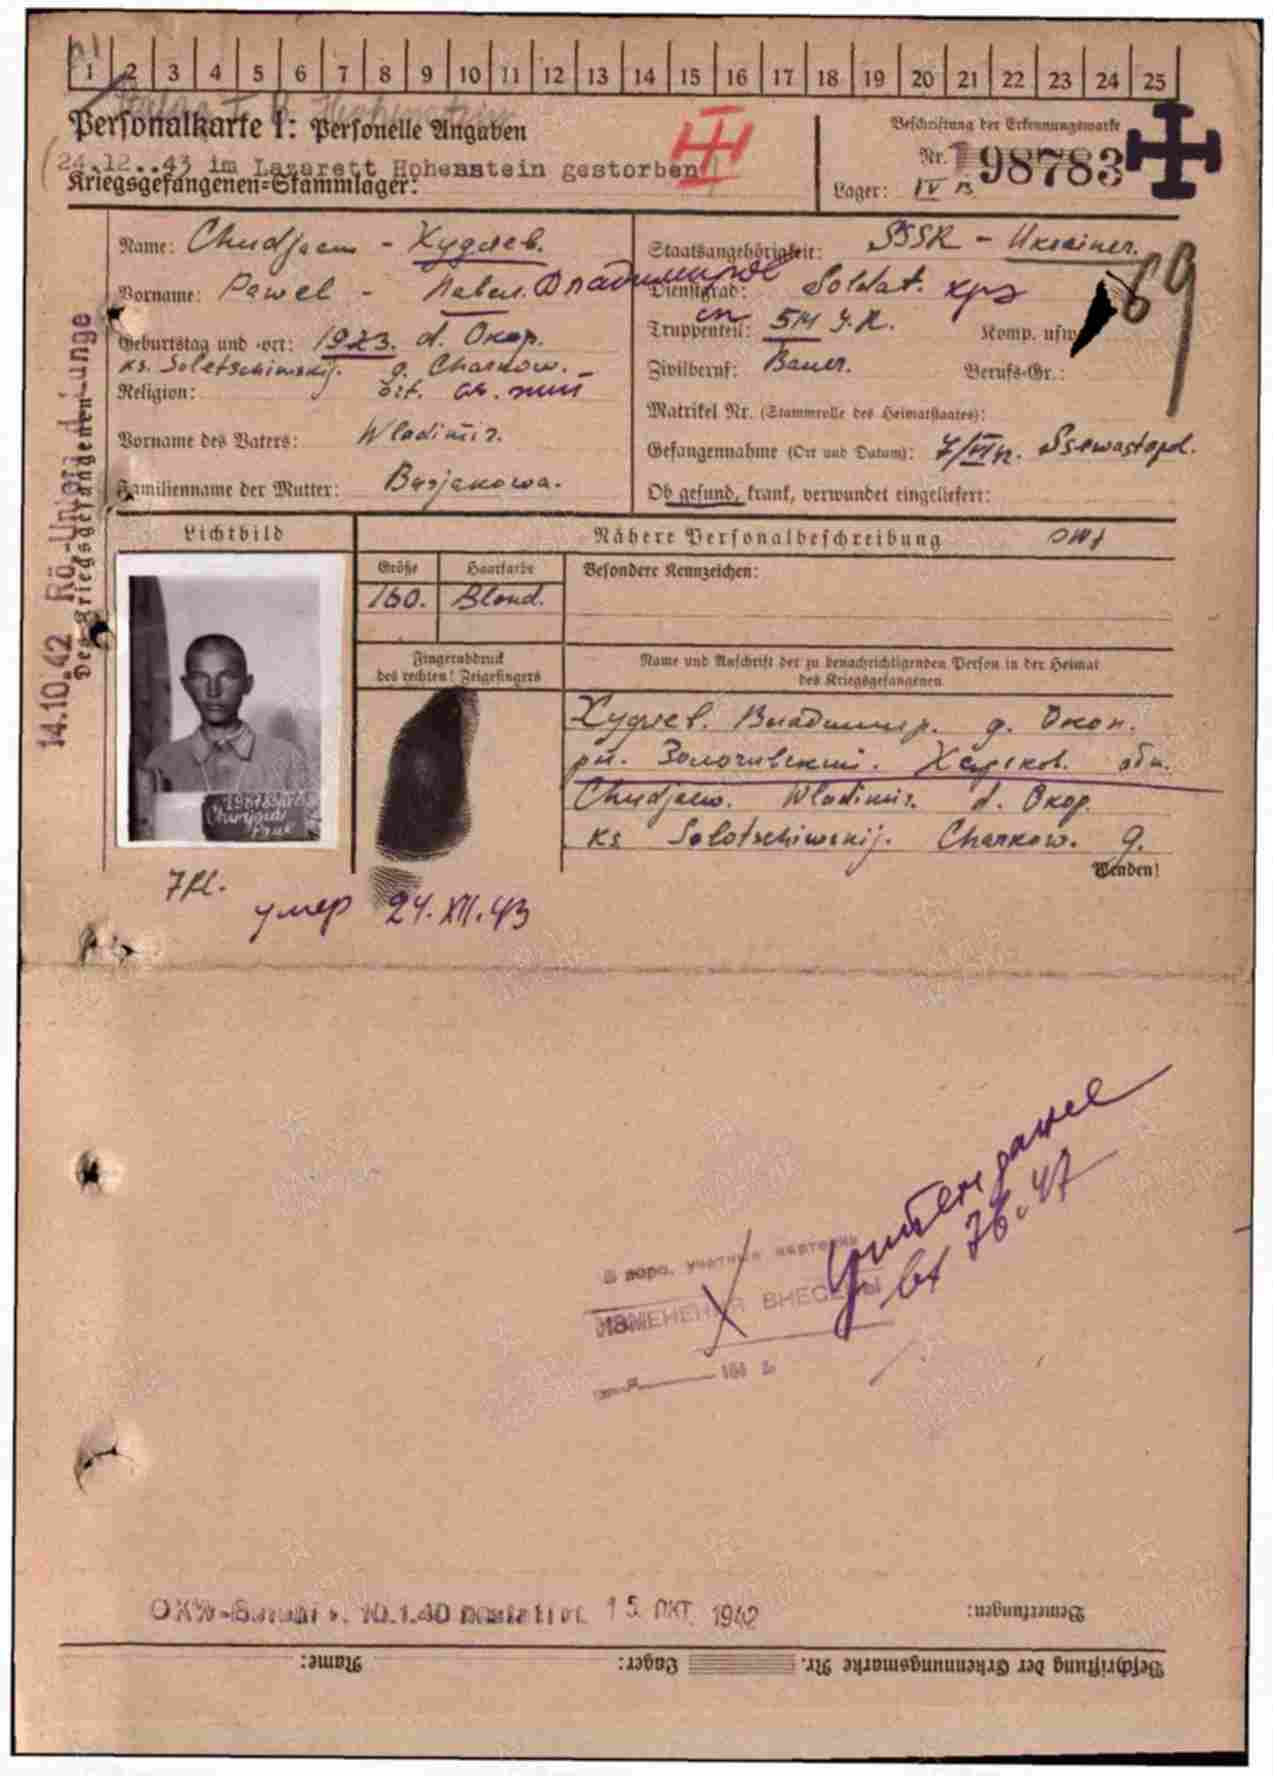 1 2 3 4 5 6 7 8 9 10 11 12 13 14 15 16 17 18 19 20 21 22 23 24 25
Personalkarte I: Personelle Angaben
24.12..43 im Lazarett Hohenstein gestorben
Kriegsgefangenen=Stammlager:
Beschriftung der Erkennungsmarke
Nr. 198783
Lager: IV B
Name: Chudjaew - Худяев.
Vorname: Pawel - Павел. Владимиров
Geburtstag und -ort: 1923. d. Окор.
ks. Solotschiwskij. g. Charkow.
Religion:
Vorname des Vaters: Wladimir.
Familienname der Mutter: Busjakowa.
Staatsangehörigkeit: SSSR - Ukrainer.
69
Dienstgrad: Soldat. кр
Truppenteil: сп 514 J.R. Komp. usw.
Zivilberuf: Bauer. Berufs-Gr.:
Matrikel Nr. (Stammrolle des Heimatstaates):
Gefangennahme (Ort und Datum): Ssewastopol.
Ob gesund, krank, verwundet eingeliefert:
14.10.42 Rö.-Unters.
Lichtbild
Nähere Personalbeschreibung
Größe Haarfarbe Besondere Kennzeichen:
160. Blond.
Fingerabdruck
des rechten! Zeigefingers
Name und Anschrift der zu benachrichtigenden Person in der Heimat
des Kriegsgefangenen
Худяев. Владимир. д. Окоп.
рн. Золочивский. Харьков. обл.
Chudjaew. Wladimir. d. Окор.
ks Solotschiwskij. Charkow. g.
Wenden!
7Kl.
умер 24.XII.43
вх 76.47
учетная карточка
ИЗМЕНЕНИЯ ВНЕСЕНЫ
194 г.
15. ОКТ. 1942
Bemerkungen:
Beschriftung der Erkennungsmarke Nr. Lager: Name: